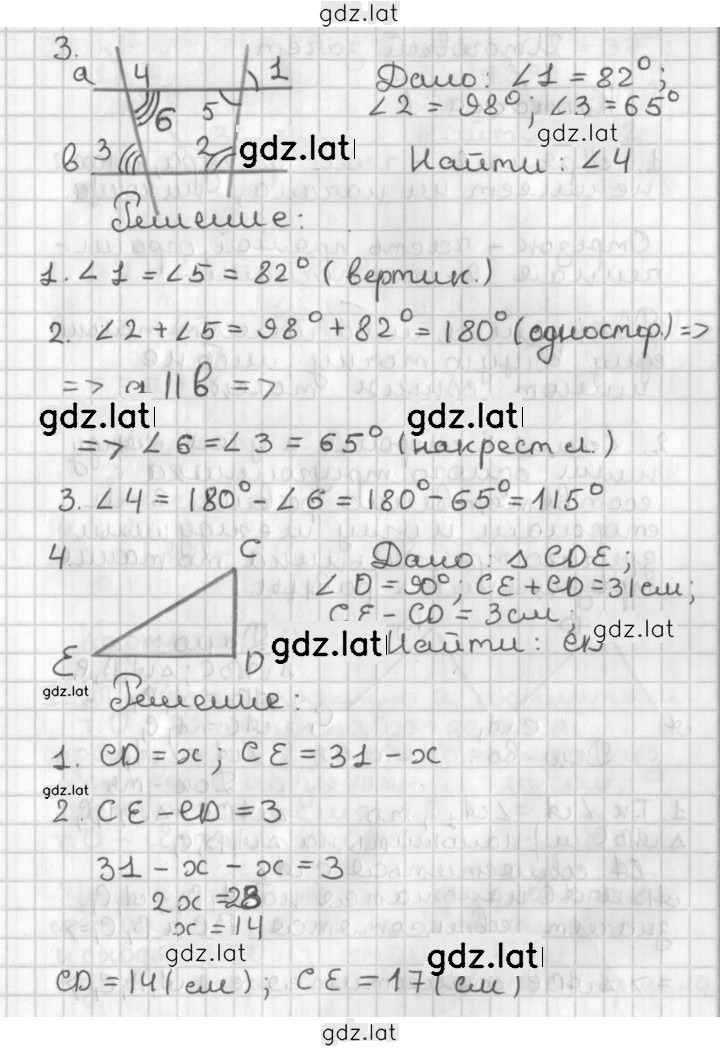 gdz.lat
3.
a 4 1 Дано: ∠1 = 82°;
6 5 ∠2 = 98°; ∠3 = 65°
gdz.lat gdz.lat
в 3 2 Найти: ∠4
Решение:
1. ∠1 = ∠5 = 82° (вертик.)
2. ∠2 + ∠5 = 98° + 82° = 180° (одностор.) =>
=> a || в =>
gdz.lat gdz.lat
=> ∠6 = ∠3 = 65° (накрест л.)
3. ∠4 = 180° - ∠6 = 180° - 65° = 115°
4. C Дано: △ CDE;
∠D = 90°; CE + CD = 31 см;
CE - CD = 3 см;
gdz.lat Найти: CD gdz.lat
E D
gdz.lat Решение:
1. CD = x; CE = 31 - x
gdz.lat
2. CE - CD = 3
31 - x - x = 3
2x = 28
x = 14
gdz.lat gdz.lat
CD = 14 (см); CE = 17 (см)
gdz.lat